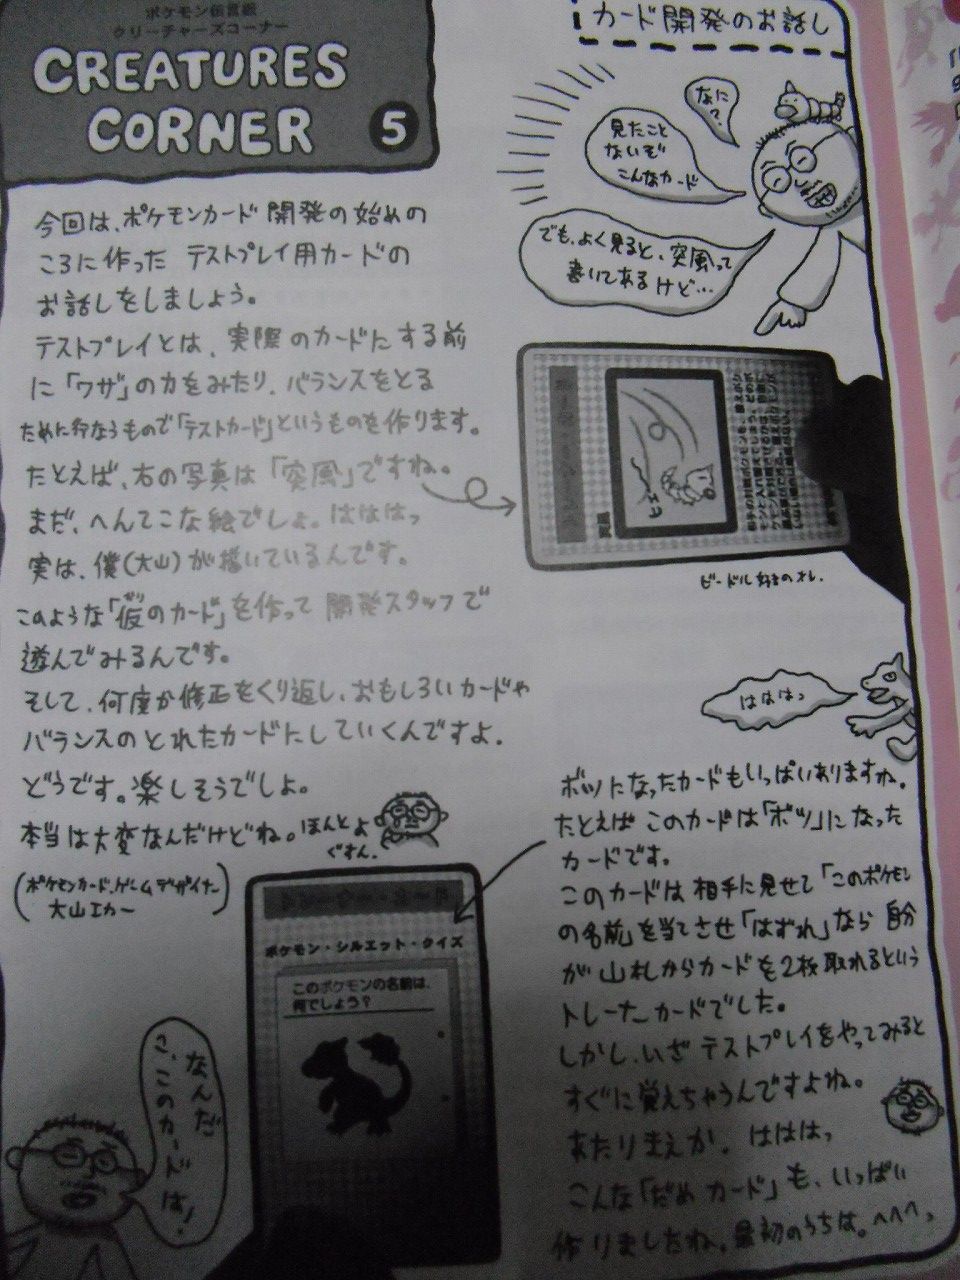 ポケモン伝言板
クリーチャーズコーナー
CREATURES
CORNER
5
カード開発のお話し
なに?
見たこと
ないぞ
こんなカード
でも、よく見ると、突風って
書いてあるけど…
今回は、ポケモンカード開発の始めの
ころに作った テストプレイ用カードの
お話しをしましょう。
テストプレイとは、実際のカードにする前
に「ワザ」の力をみたり、バランスをとる
ために行なうもので「テストカード」というものを作ります。
たとえば、右の写真は「突風」ですね。
まだ、へんてこな絵でしょ。はははっ
実は、僕(大山)が描いているんです。
このような「仮のカード」を作って 開発スタッフで
かり
遊んでみるんです。
そして、何度か修正をくり返し、おもしろいカードや
バランスのとれたカードにしていくんですよ。
どうです。楽しそうでしょ。
本当は大変なんだけどね。
ほんとよ
ぐすん。
(ポケモンカード、ゲームデザイナー
大山エカー)
突風
ビードル好きのオレ。
ははは、
ボツになったカードもいっぱいありますね。
たとえば このカードは「ボツ」になった
カードです。
このカードは 相手に見せて「このポケモン
の名前」を当てさせ「はずれ」なら 自分
が 山札からカードを2枚取れるという
トレーナーカードでした。
しかし、いざ テストプレイをやってみると
すぐに覚えちゃうんですよね。
あたりまえか。ははは、
こんな「だめ カード」も、いっぱい
作りましたね。最初のうちは。へへへっ
ポケモン・シルエット・クイズ
このポケモンの名前は、
何でしょう?
なんだ
こ、このカードは!